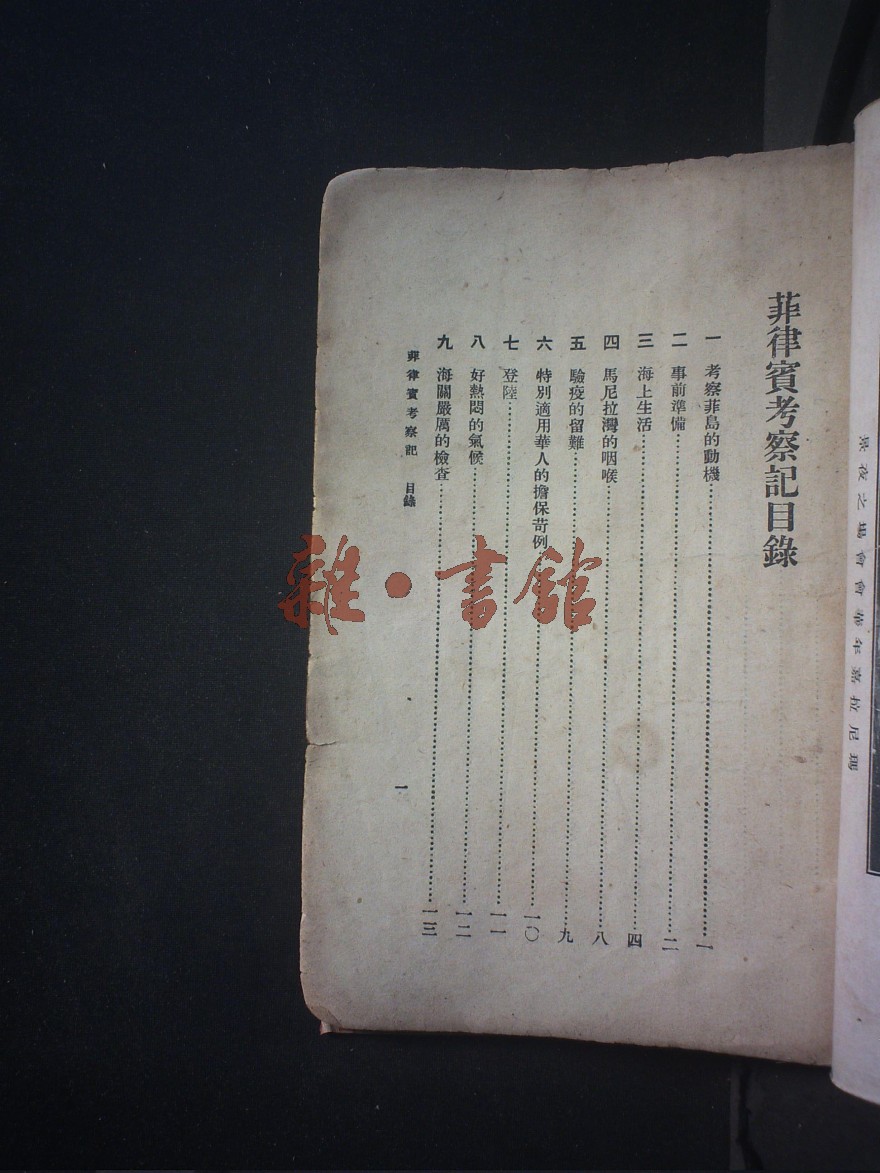 菲律賓考察記目錄
一 考察菲島的動機……一
二 事前準備……二
三 海上生活……四
四 馬尼拉灣的咽喉……八
五 驗疫的留難……九
六 特別適用華人的擔保苛例……一〇
七 登陸……一一
八 好熱悶的氣候……一二
九 海關嚴厲的檢查……一三
菲律賓考察記 目錄
一
瑪尼拉嘉年華會會場之夜景
雜·書館